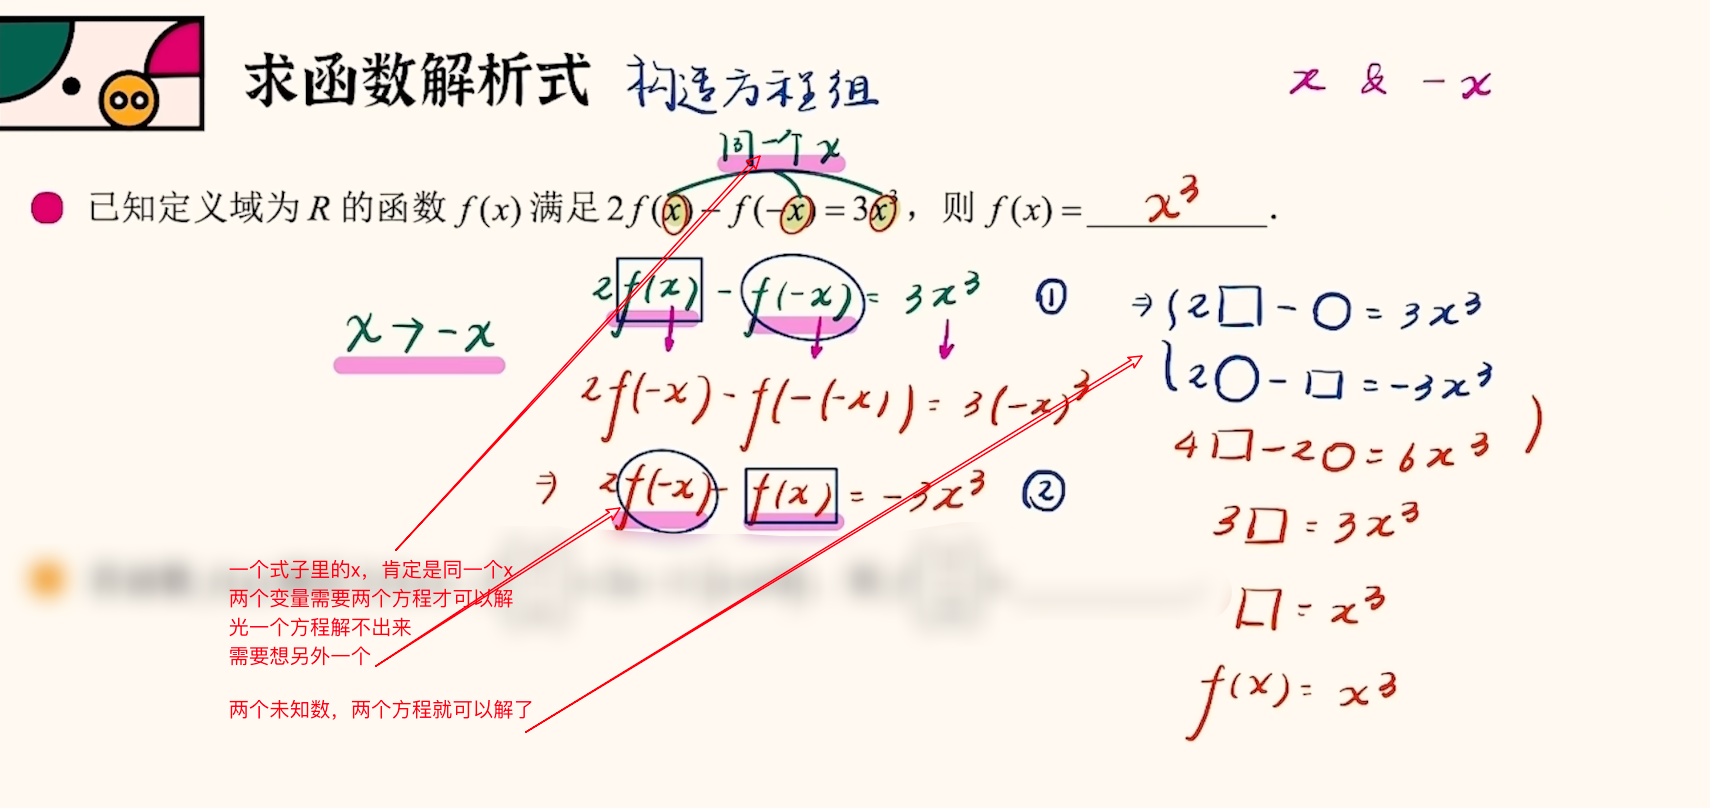 求函数解析式 构造方程组
x & -x
同一个 x
已知定义域为 R 的函数 f(x) 满足 2f(x) - f(-x) = 3x³，则 f(x) = x³ .
2f(x) - f(-x) = 3x³ ①
x → -x
2f(-x) - f(-(-x)) = 3(-x)³
⇒ 2f(-x) - f(x) = -3x³ ②
⇒ { 2□ - ○ = 3x³
2○ - □ = -3x³
4□ - 2○ = 6x³ )
3□ = 3x³
□ = x³
f(x) = x³
一个式子里的x，肯定是同一个x
两个变量需要两个方程才可以解
光一个方程解不出来
需要想另外一个
两个未知数，两个方程就可以解了